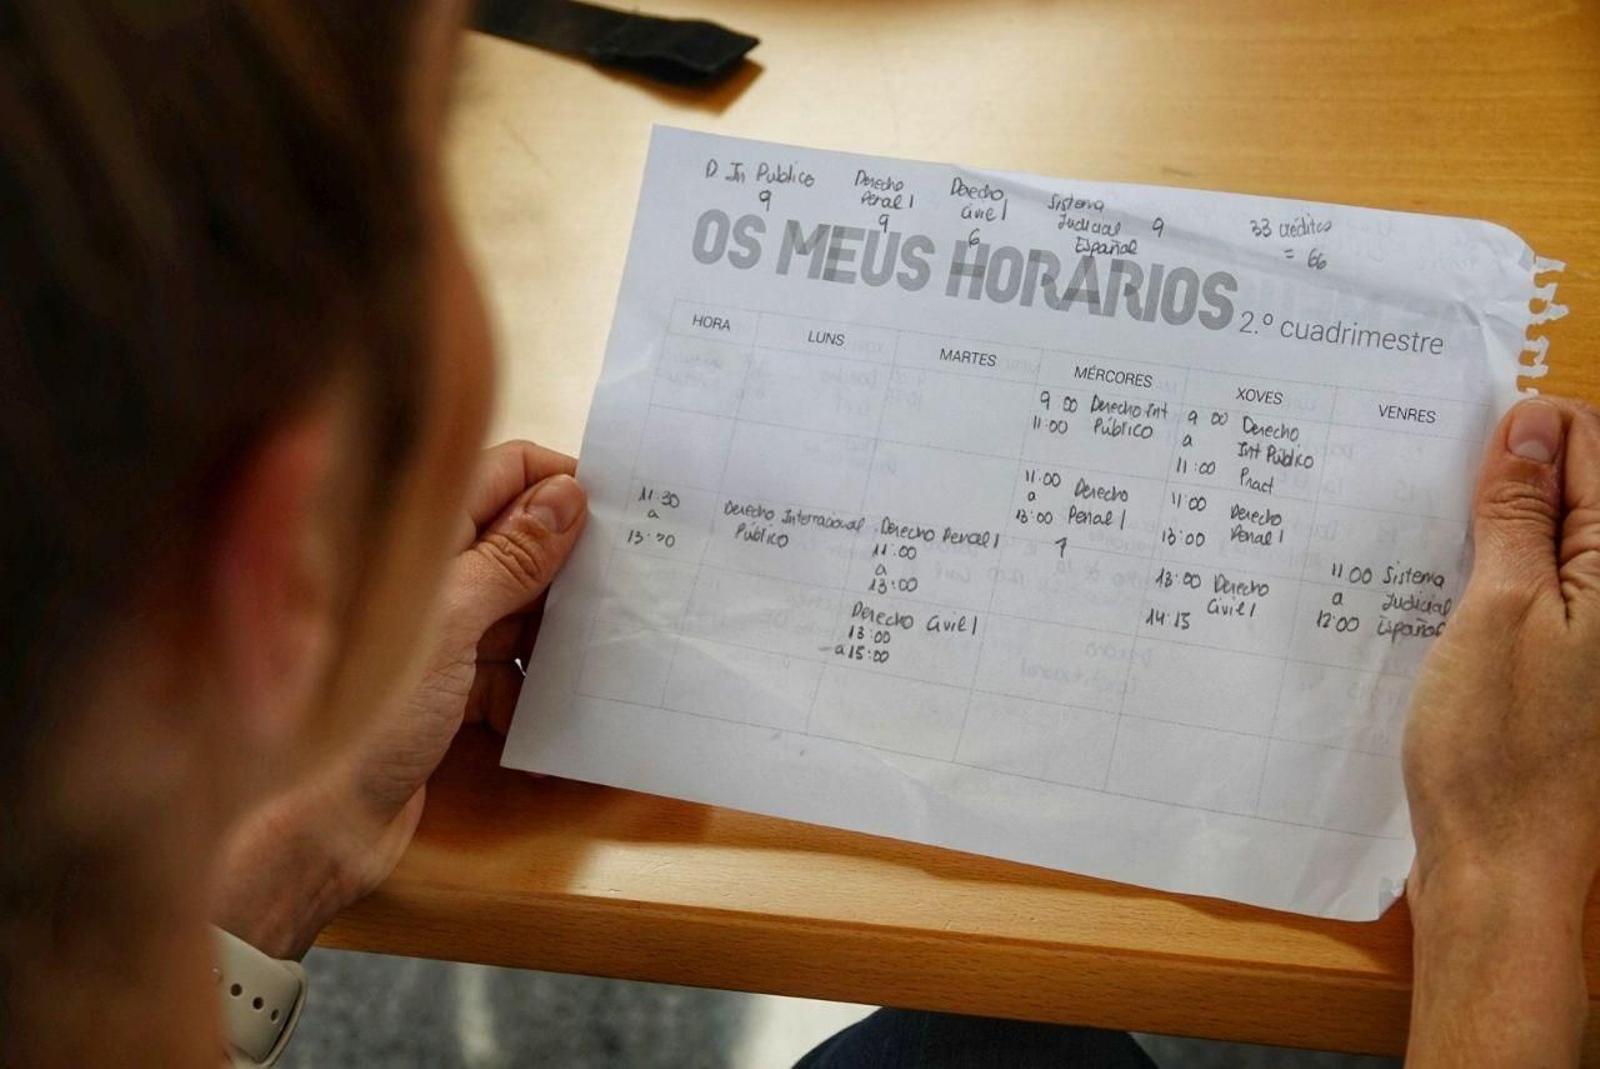 D. In Publico
9
Derecho
Penal I
9
Derecho
Civil I
6
Sistema
Judicial 9
Español
33 créditos
= 66
OS MEUS HORARIOS 2.º cuadrimestre
HORA LUNS MARTES MÉRCORES XOVES VENRES
9 00 Derecho Int
11:00 Público
9 00 Derecho
a Int Público
11:00 Pract
11:00 Derecho
a
13:00 Penal I
1
11:00 Derecho
13:00 Penal I
11:30
a
13:30
Derecho Internacional
Público
Derecho Penal I
11:00
a
13:00
13:00 Derecho
Civil I
14:15
11 00 Sistema
a Judicial
12:00 Español
Derecho Civil I
13:00
a 15:00